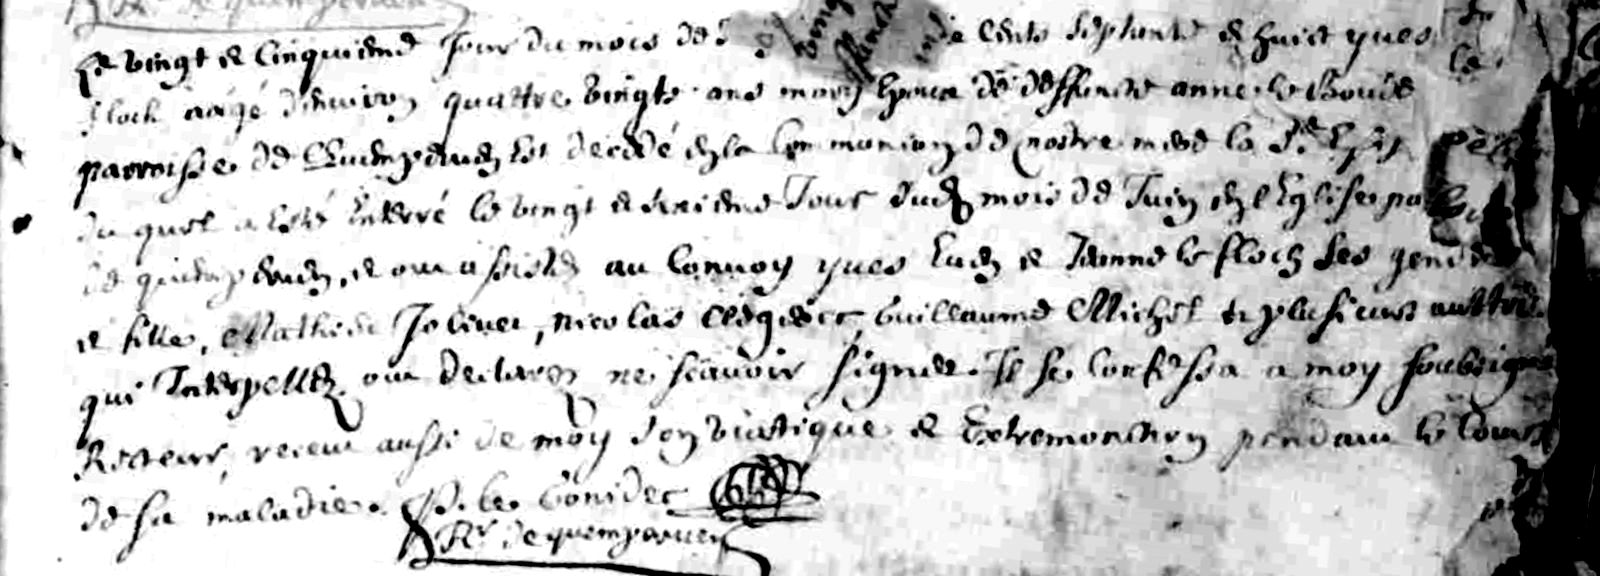 Rr de quemperuen
Le vingt et cinquieme Jour du mois de cents septante et huict yves le
floch aagé d'environ quattre vingts ans mary epoux de deffunte anne le
parroisse de Quemperven est decedé en la communion de nostre mere la Ste Eglise
du quel a esté enterré le vingt et sixieme Jour dud mois de Juin en l'Eglise
de quemperven, et ont assisté au convoy yves Even et Jeanne le floch ses gendre
et fille, Mathieu Jolivet, nicolas Guillaume Michel et plusieurs auttres
qui Interpellez ont declaré ne scavoir signer. Il se confessa a moy soubsigné
Recteur, receut aussi de moy son viatique et Extremonction pendant le cours
de sa maladie. le Gonidec
Rr de quemperuen